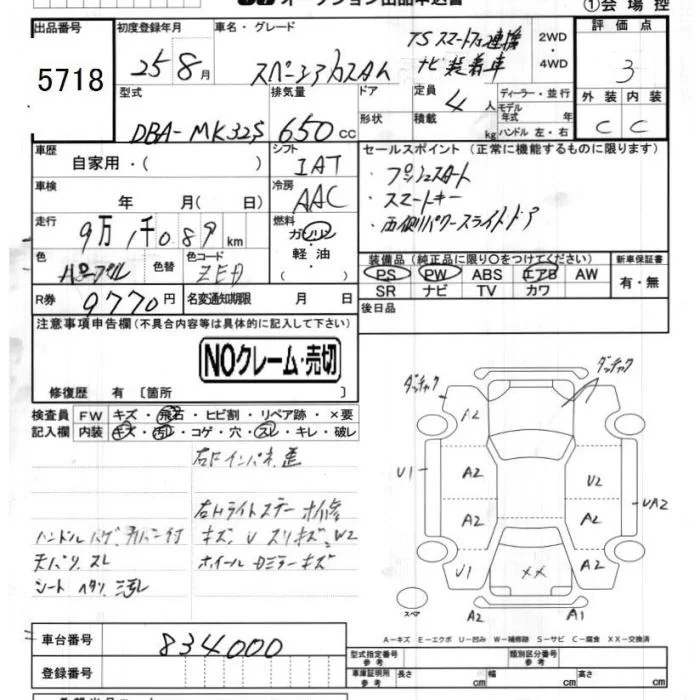 オークション出品申込書
①会場控
出品番号 初度登録年月 車名・グレード 2WD・4WD 評価点
5718 25 8月 スペーシアカスタム TSスマートフォン連携ナビ装着車 3
外装 内装
C C
型式 排気量 ドア 定員 ディーラー・並行
DBA-MK32S 650 cc 4人 モデル年式 年
形状 積載 kg ハンドル 左・右
車歴 シフト セールスポイント(正常に機能するものに限ります)
自家用・( ) IAT ・プッシュスタート
車検 冷房 ・スマートキー
年 月( 日) AAC ・両側パワースライドドア
走行 燃料
9万1千089km ガソリン
色 色替 色コード 軽油
パープル ZED ・( )
装備品(純正品に限り○をつけてください) 新車保証書
PS PW ABS エアB AW 有・無
SR ナビ TV カワ
R券 9770円 名変通知期限 月 日
後日品
注意事項申告欄(不具合内容等は具体的に記入して下さい)
NOクレーム・売切
修復歴 有〔箇所 〕
検査員 FW キズ・飛石・ヒビ割・リペア跡・×要
記入欄 内装 キズ・汚れ・コゲ・穴・スレ・キレ・破レ
右Fインパネ
右Hライトステー
ハンドル ハゲ キズ、U スリキズ、W2
天バリ スレ ホイール Dミラーキズ
シート ヘタリ
ダッチャク ダッチャク
A2
U1 A2 U2 UA2
A2 A2
U1 XX A2
スペア A2 A1
A-キズ E-エクボ U-凹み W-補修跡 S-サビ C-腐食 XX-交換済
車台番号 834000
型式指定番号 参考 類別区分番号 参考
登録番号 車庫証明用 参考 長さ cm 幅 cm 高さ cm